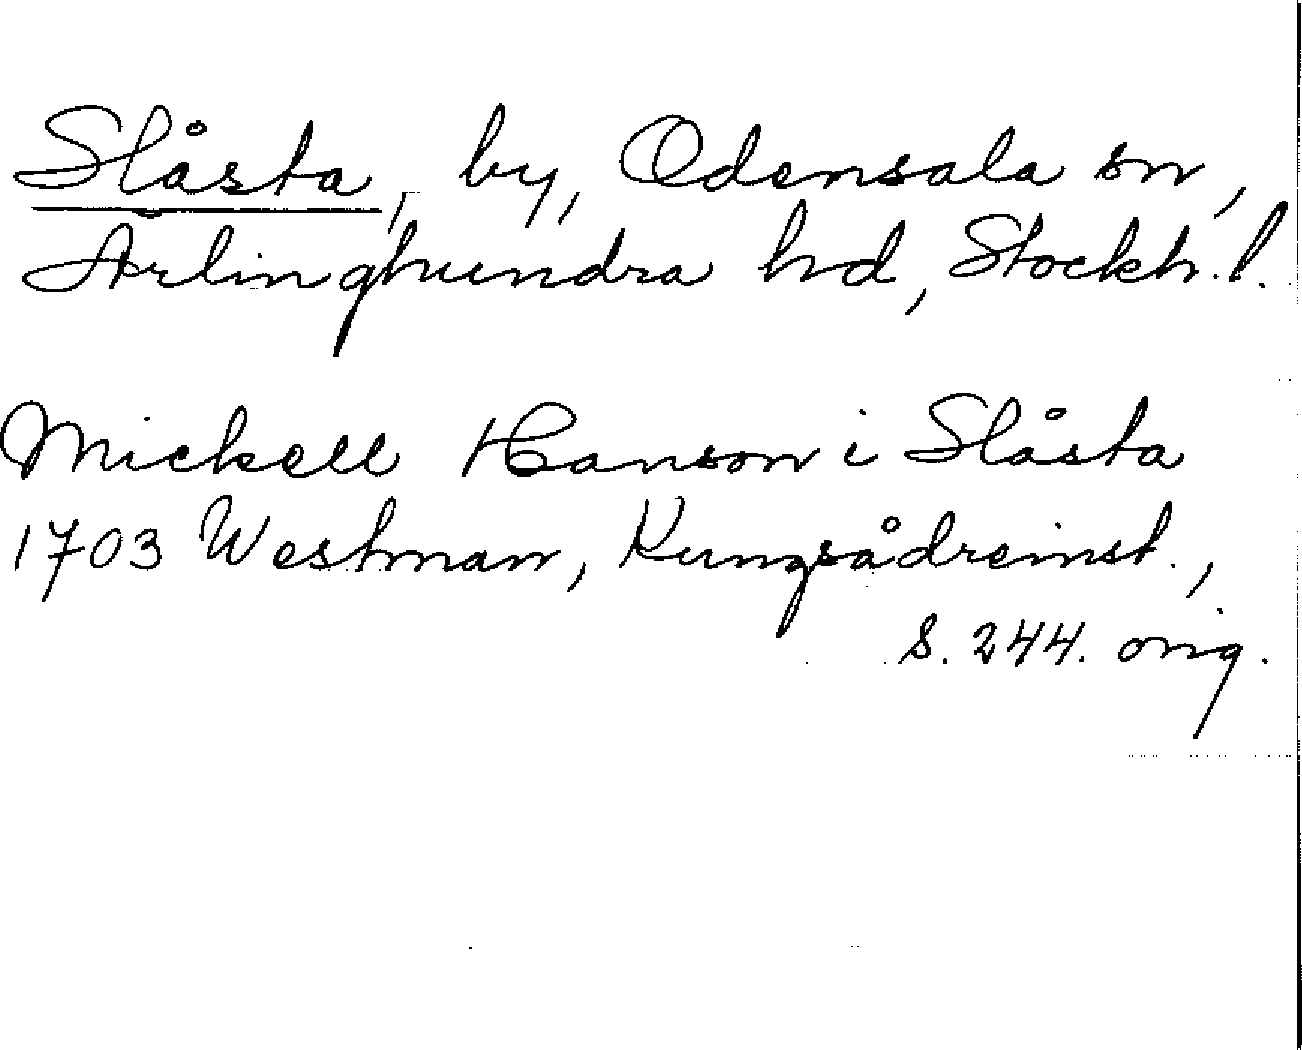 Slåsta, by, Odensala sn,
Arlinghundra hd, Stockh. l.
Mickell Hanson i Slåsta
1703 Westman, Kungsådreinst.,
S. 244. orig.